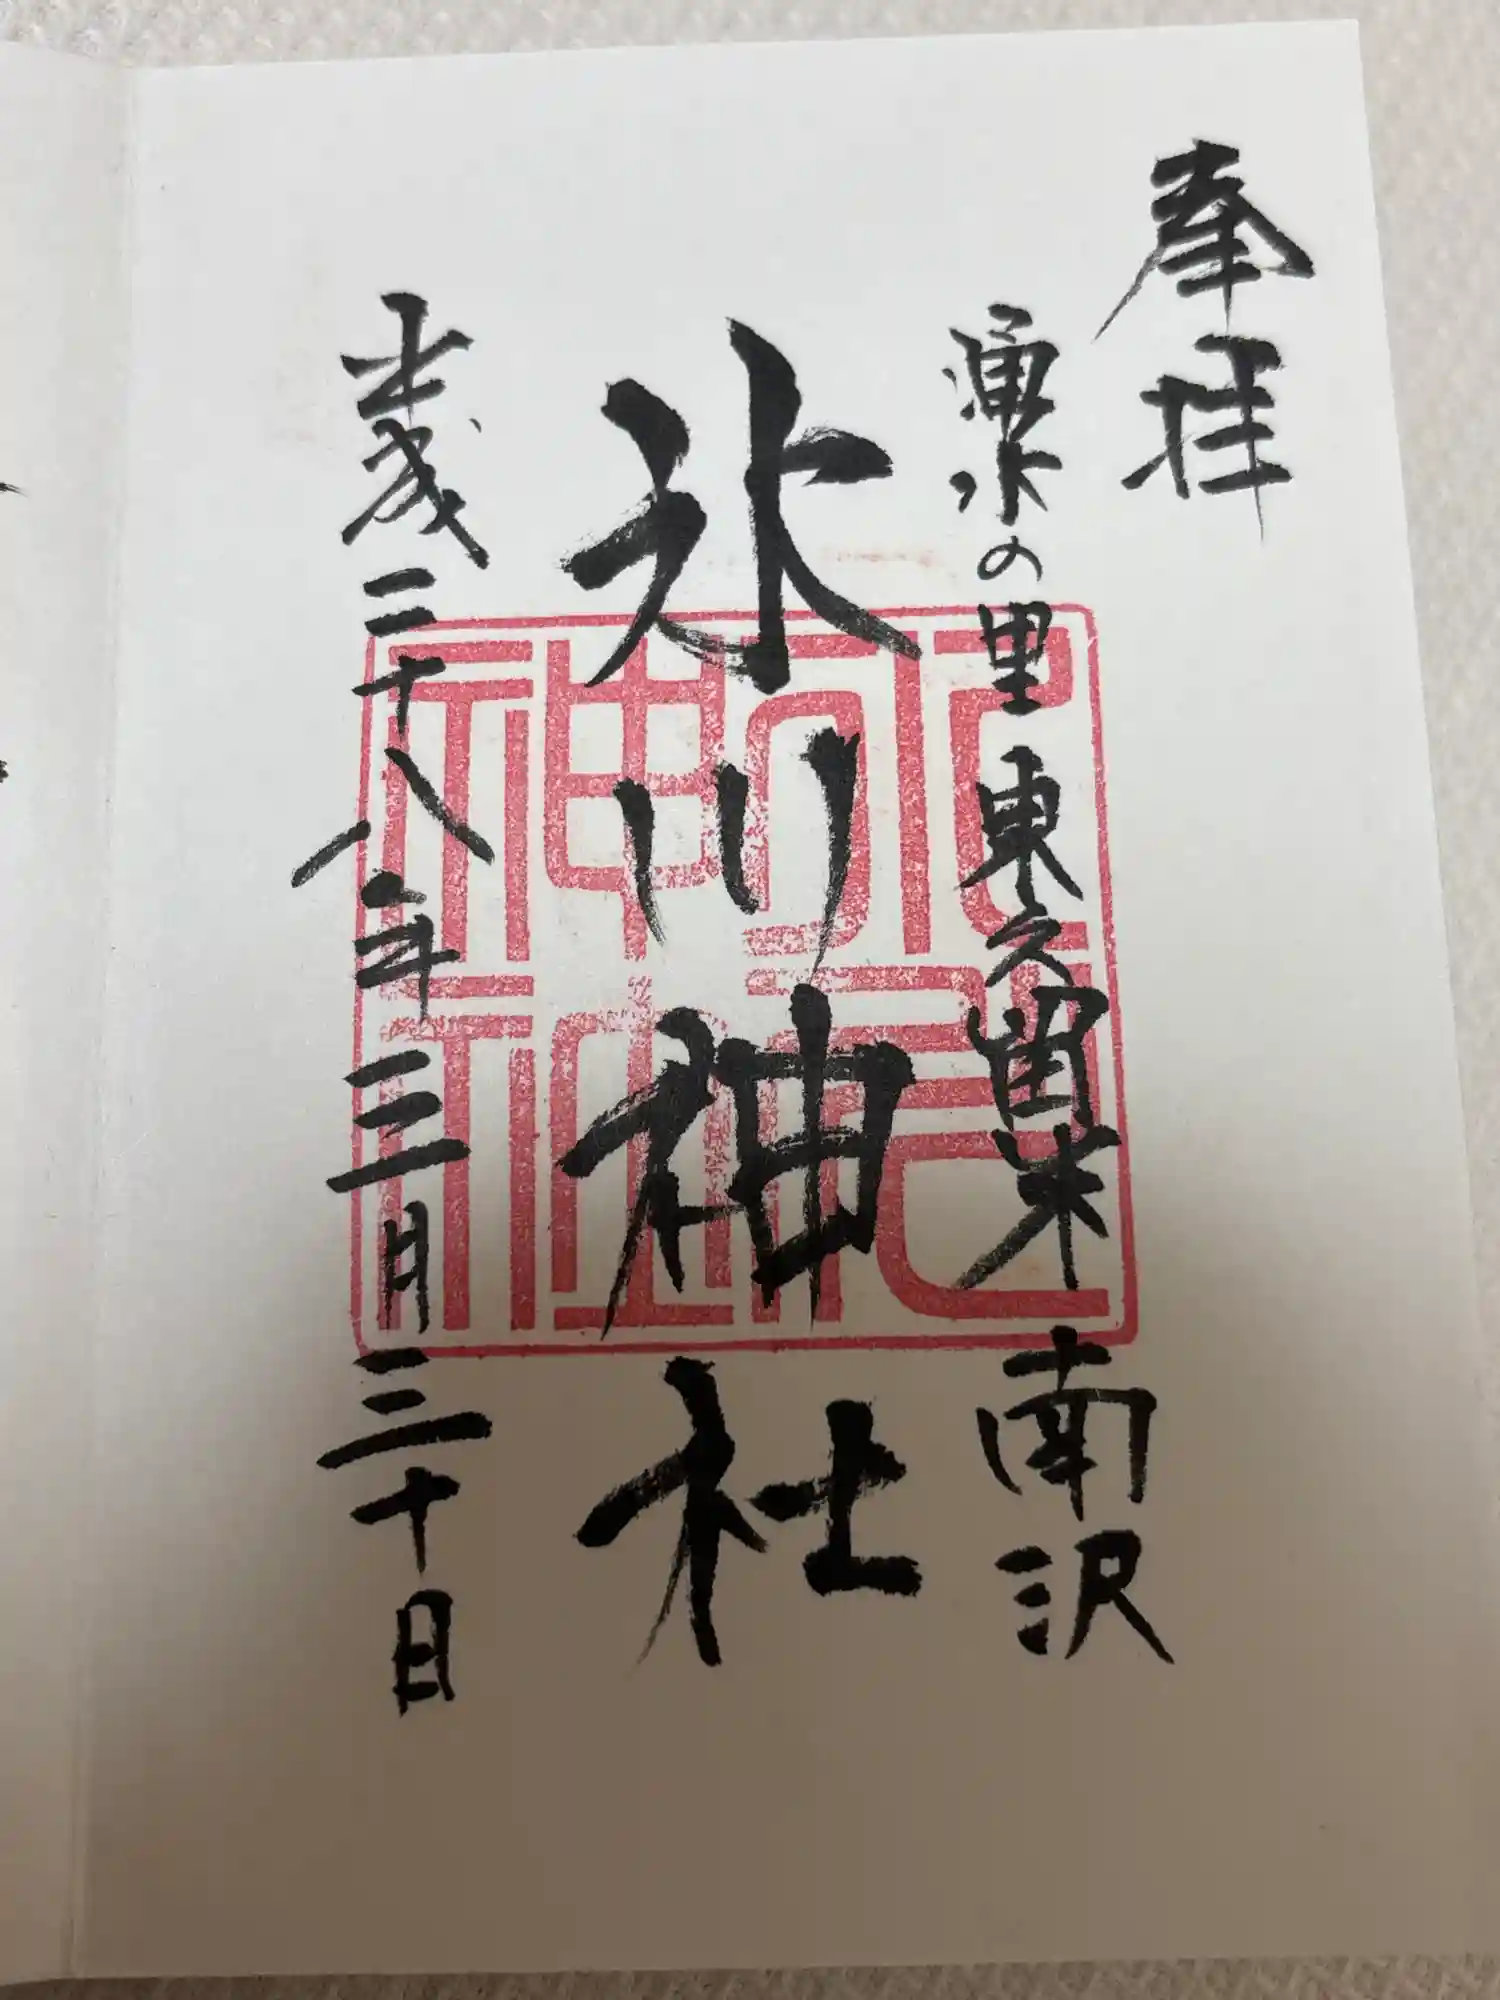 奉拝
湧水の里 東久留米 南沢
氷川神社
平成二十八年三月三十日
神社